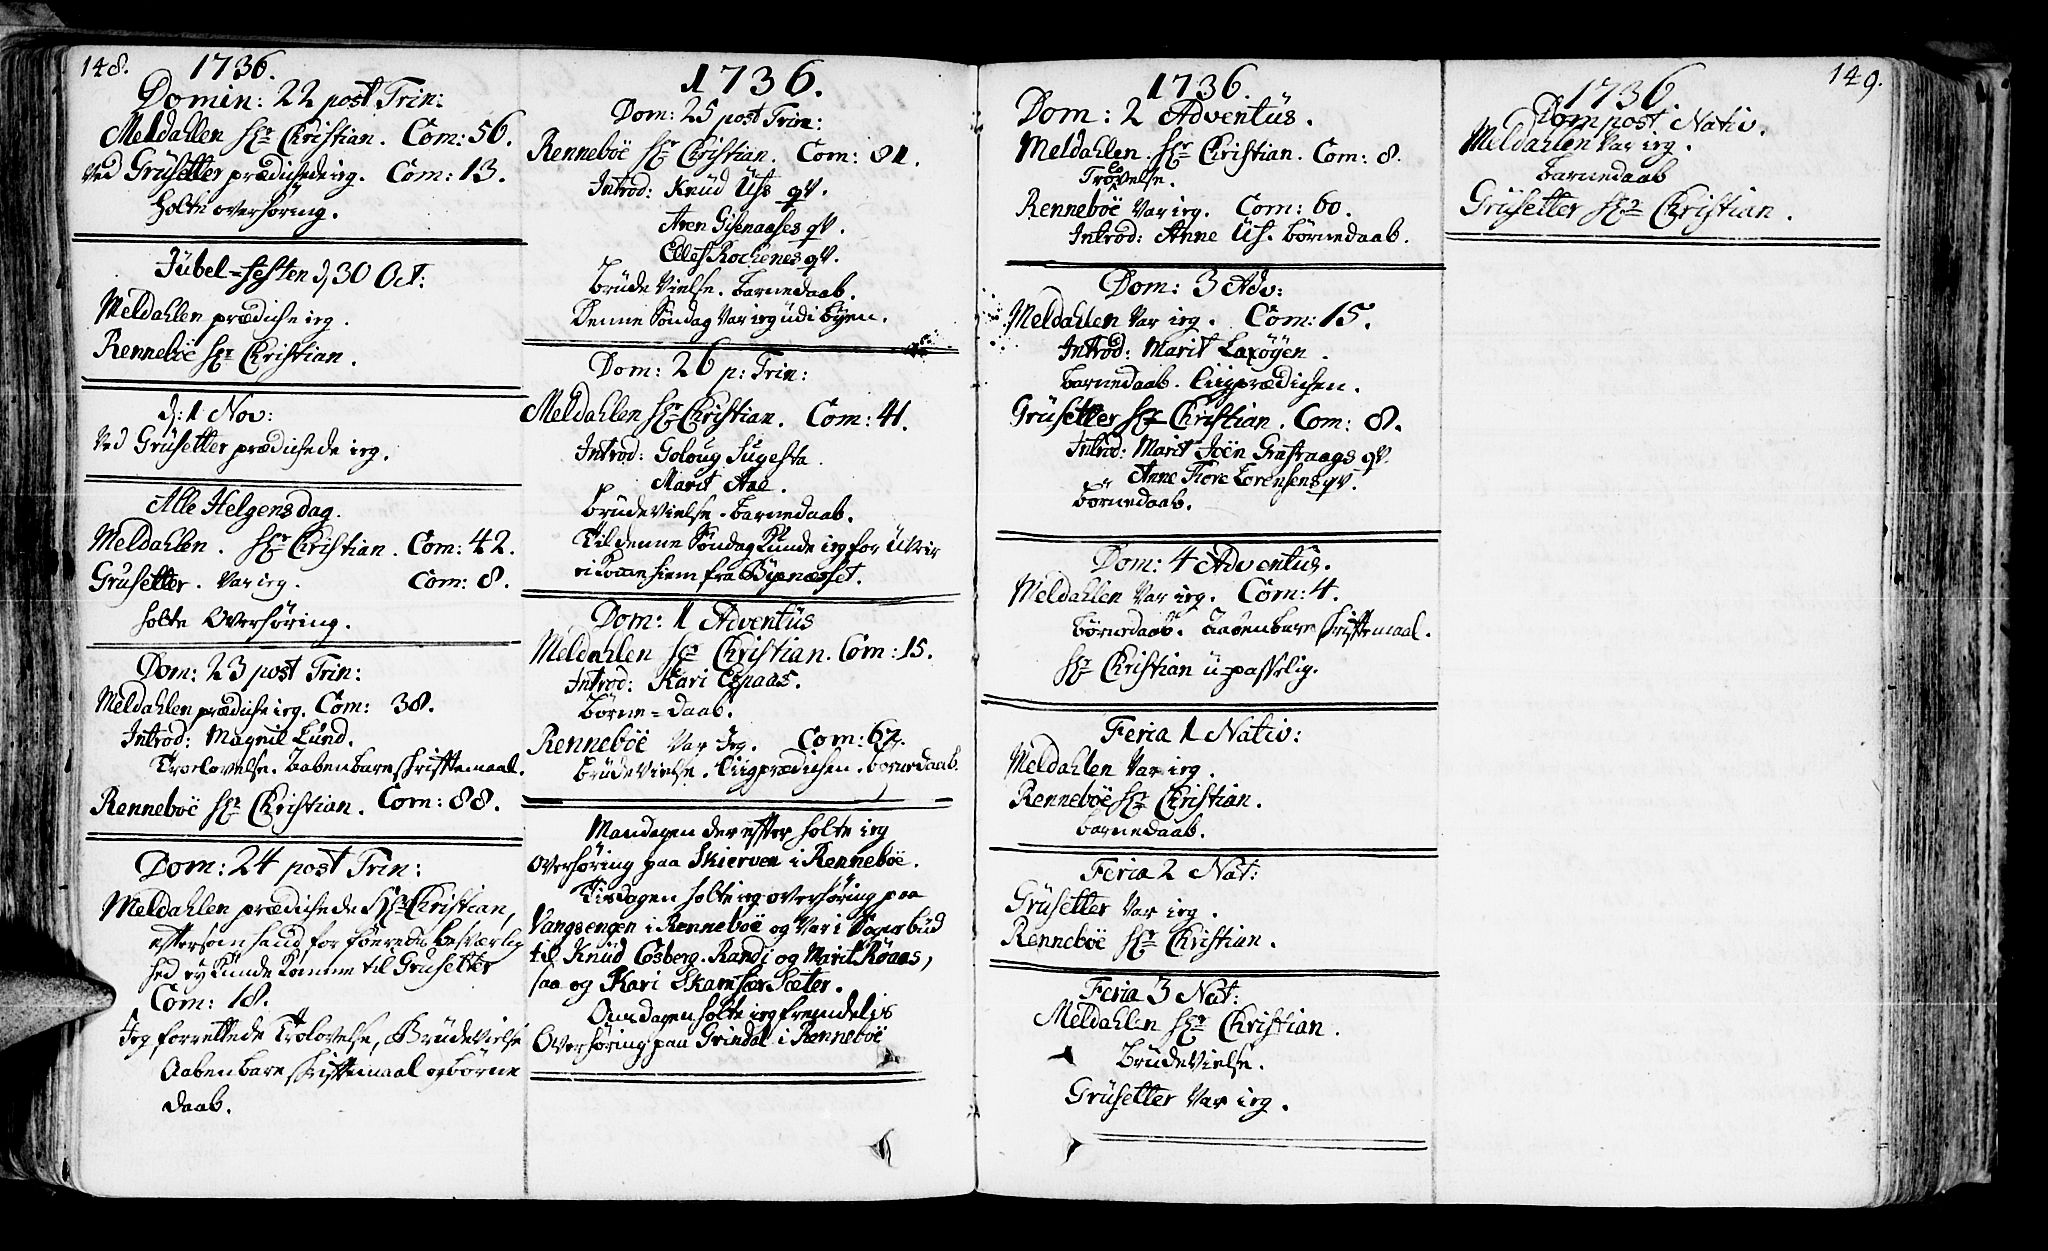 148.
1736.
Domin: 22 post Trin:
Meldahlen Hr Christian. Com: 56.
Ved Grüsetter prædichede ieg. Com: 13.
holte overhøring.
Jübel-Festen d, 30 Oct:
Meldahlen prædiche ieg.
Renneboe Hr Christian.
d: 1 Nov:
Ved Grüsetter prædichede ieg.
Alle Helgens dag.
Meldahlen. Hr Christian. Com: 42.
Grüsetter. Var ieg. Com: 8.
holte Overhøring.
Dom: 23 post Trin:
Meldahlen prædiche ieg. Com: 38.
Introd: Magnil Lund.
Trolovelse. Aabenbare skrifftemaal.
Renneboe Hr Christian. Com: 88.
Dom: 24 post Trin:
Meldahlen prædichede Hr Christian,
efftersom hand for besværlig
hed ey kunde komme til Grüsetter
Com: 18.
Jeg forrettede Trolovelse, Brüdevielse
Aabenbare skrifftemaal og børne
daab.
1736.
Dom: 25 post Trin:
Renneboe Hr Christian. Com: 81.
Introd: Knud Uhs qv.
Aren Gisenaases qv.
Elles Rochenes qv.
Brüde Vielse. Barnedaab.
Denne Søndag Var ieg üdi Byen.
Dom: 26 p: Trin:
Meldahlen Hr Christian. Com: 41.
Introd: Goloug
Marit Aae.
Brüdevielse. Barnedaab.
Til denne Søndag kunde ieg for üveir
ei komme hiem fra Byenæsset.
Dom: 1 Adventüs
Meldahlen Hr Christian. Com: 15.
Introd: Kari Espaas.
Børne-daab.
Renneboe Var Jeg. Com: 62.
Brüdevielse. Liigprædichen. børnedaab.
Mandagen der effter holte ieg
Overhøring paa Skierven i Renneboe.
Tirsdagen holte ieg overhøring paa
Vangsengen i Renneboe og Var i Sognebud
til Knüd Cosberg. Randi og Marit Røaas,
saa og Kari Skamfer Sæter.
Onsdagen holte ieg fremdelis
Overhøring paa Grindal i Renneboe
1736.
Dom: 2 Adventüs.
Meldahlen. Hr Christian. Com: 8.
Trolovelse.
Renneboe Var ieg. Com: 60.
Introd: Anne Us. Børnedaab.
Dom: 3 Adv:
Meldahlen Var ieg. Com: 15.
Introd: Marit Laxøyen.
Barnedaab. Liigprædichen.
Grüsetter Hr Christian. Com: 8.
Introd: Marit Joen Grefraags qv.
Anne Tore Lorensens qv.
Børnedaab.
Dom: 4 Adventüs.
Meldahlen Var ieg. Com: 4.
Børnedaab. Aabenbare skrifftemaal.
Hr Christian ü-passelig.
Feria 1 Nativ:
Meldahlen Var ieg.
Renneboe Hr Christian.
Barnedaab.
Feria 2 Nat:
Grüsetter Var ieg.
Renneboe Hr Christian.
Feria 3 Nat:
Meldahlen Hr Christian.
Brüdevielse.
Grüsetter Var ieg.
149.
1736
Dom post Nativ.
Meldahlen Var ieg.
Barnedaab
Grüsetter Hr Christian.